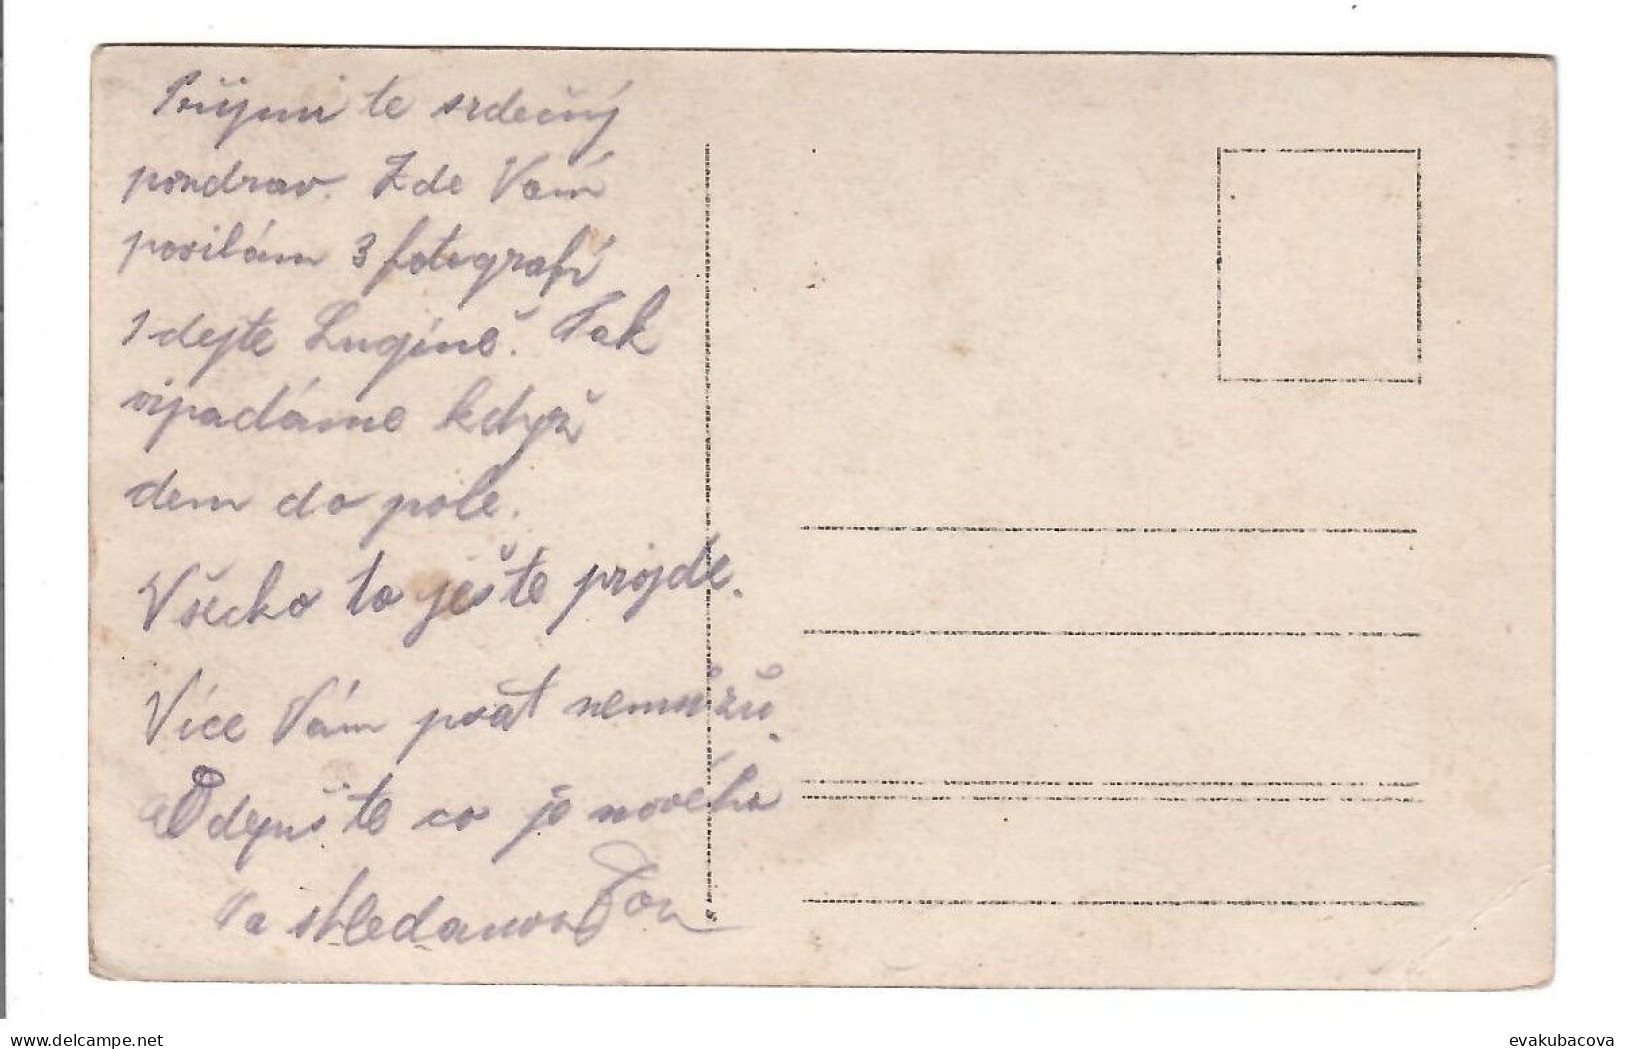 Přijmi te srdečný
pozdrav. Zde Vám
posilám 3 fotografi
1 dejte Lugině. Tak
vipadáme když
dem do pole.
Všecko to ješte projde.
Více Vám psat nemůžů.
Odepuš te co je nového
Na shledanou
the-delcampe.net
evakubacova